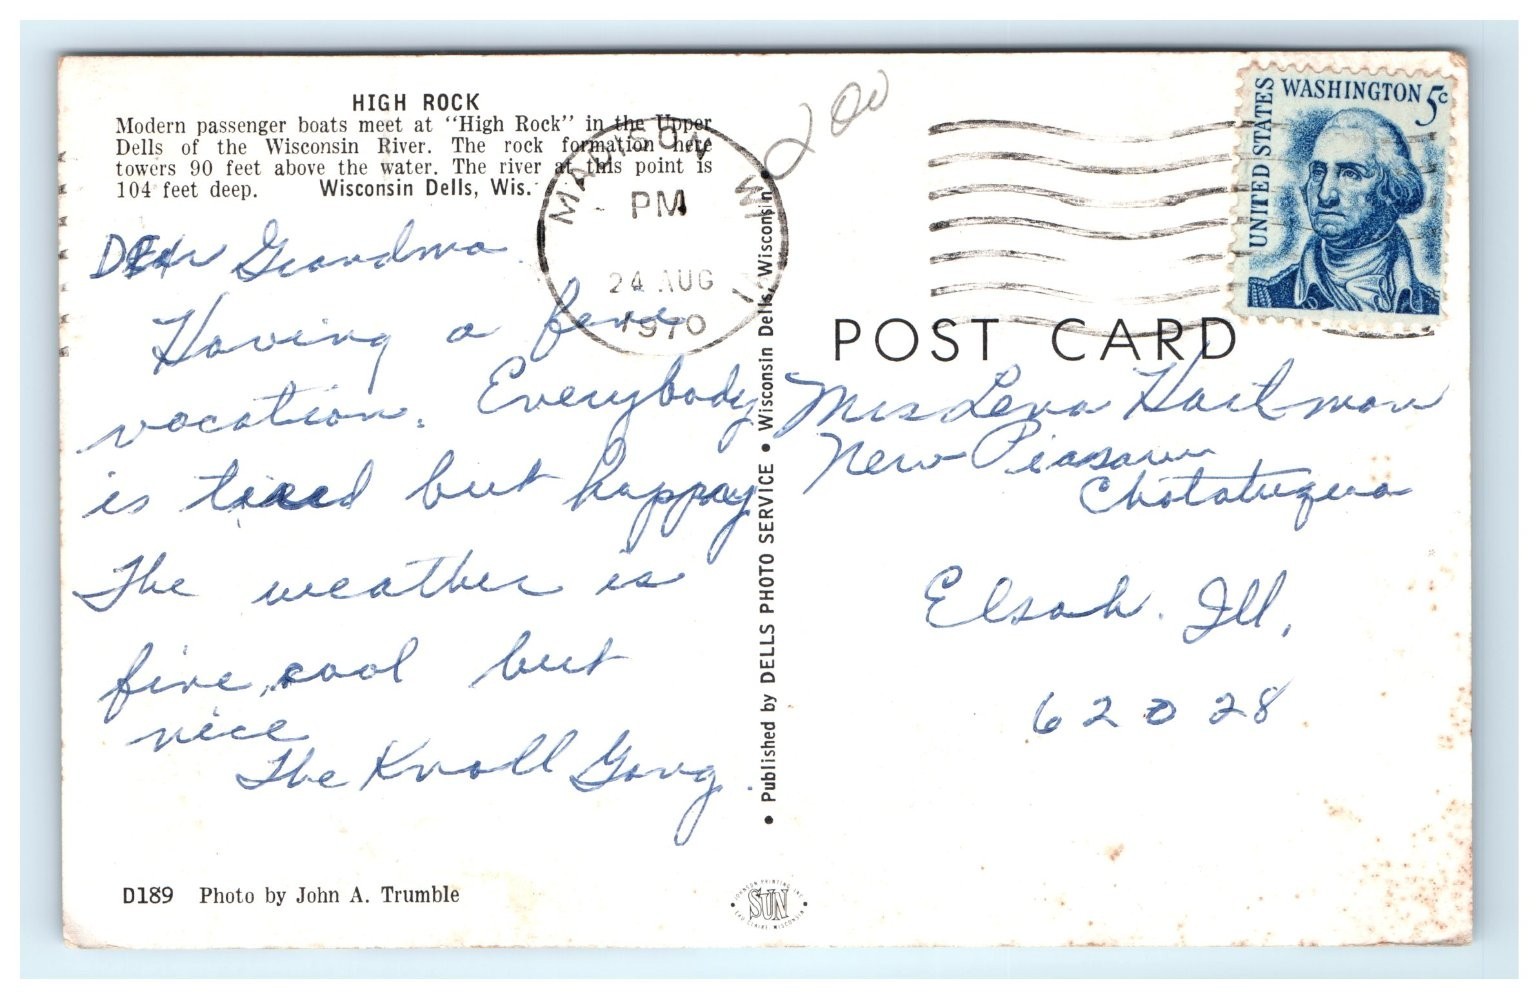 HIGH ROCK
Modern passenger boats meet at "High Rock" in the Upper
Dells of the Wisconsin River. The rock formation here
towers 90 feet above the water. The river at this point is
104 feet deep. Wisconsin Dells, Wis.
Dear Grandma.
Having a fine
vacation. Everybody
is tired but happy
The weather is
fine, cool but
nice
The Knoll Gang.
D189 Photo by John A. Trumble
MADISON WI
PM
24 AUG
1970
200
• Published by DELLS PHOTO SERVICE • Wisconsin Dells, Wisconsin •
SUN
UNITED STATES
WASHINGTON 5c
POST CARD
Mrs Lena Hartman
New Piasau
Chatatuqua
Elsah. Ill.
62028